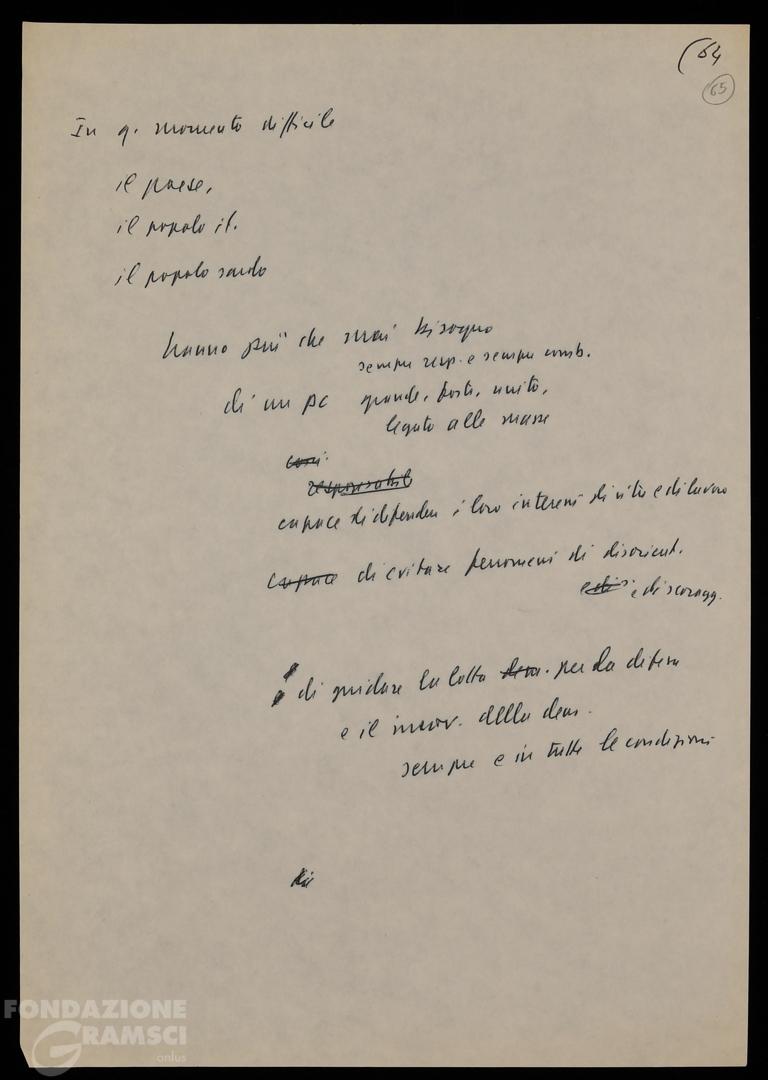 (64
65
In q. momento difficile
il paese,
il popolo it.
il popolo sardo
hanno più che mai bisogno
sempre resp. e sempre comb.
di un pc grande, forte, unito,
legato alle masse
così
responsabile
capace di difendere i loro interessi di vita e di lavoro
capace di evitare fenomeni di disorient.
e di scoragg.
di guidare la lotta dem. per la difesa
e il innov. della dem.
sempre e in tutte le condizioni
FONDAZIONE
GRAMSCI
onlus